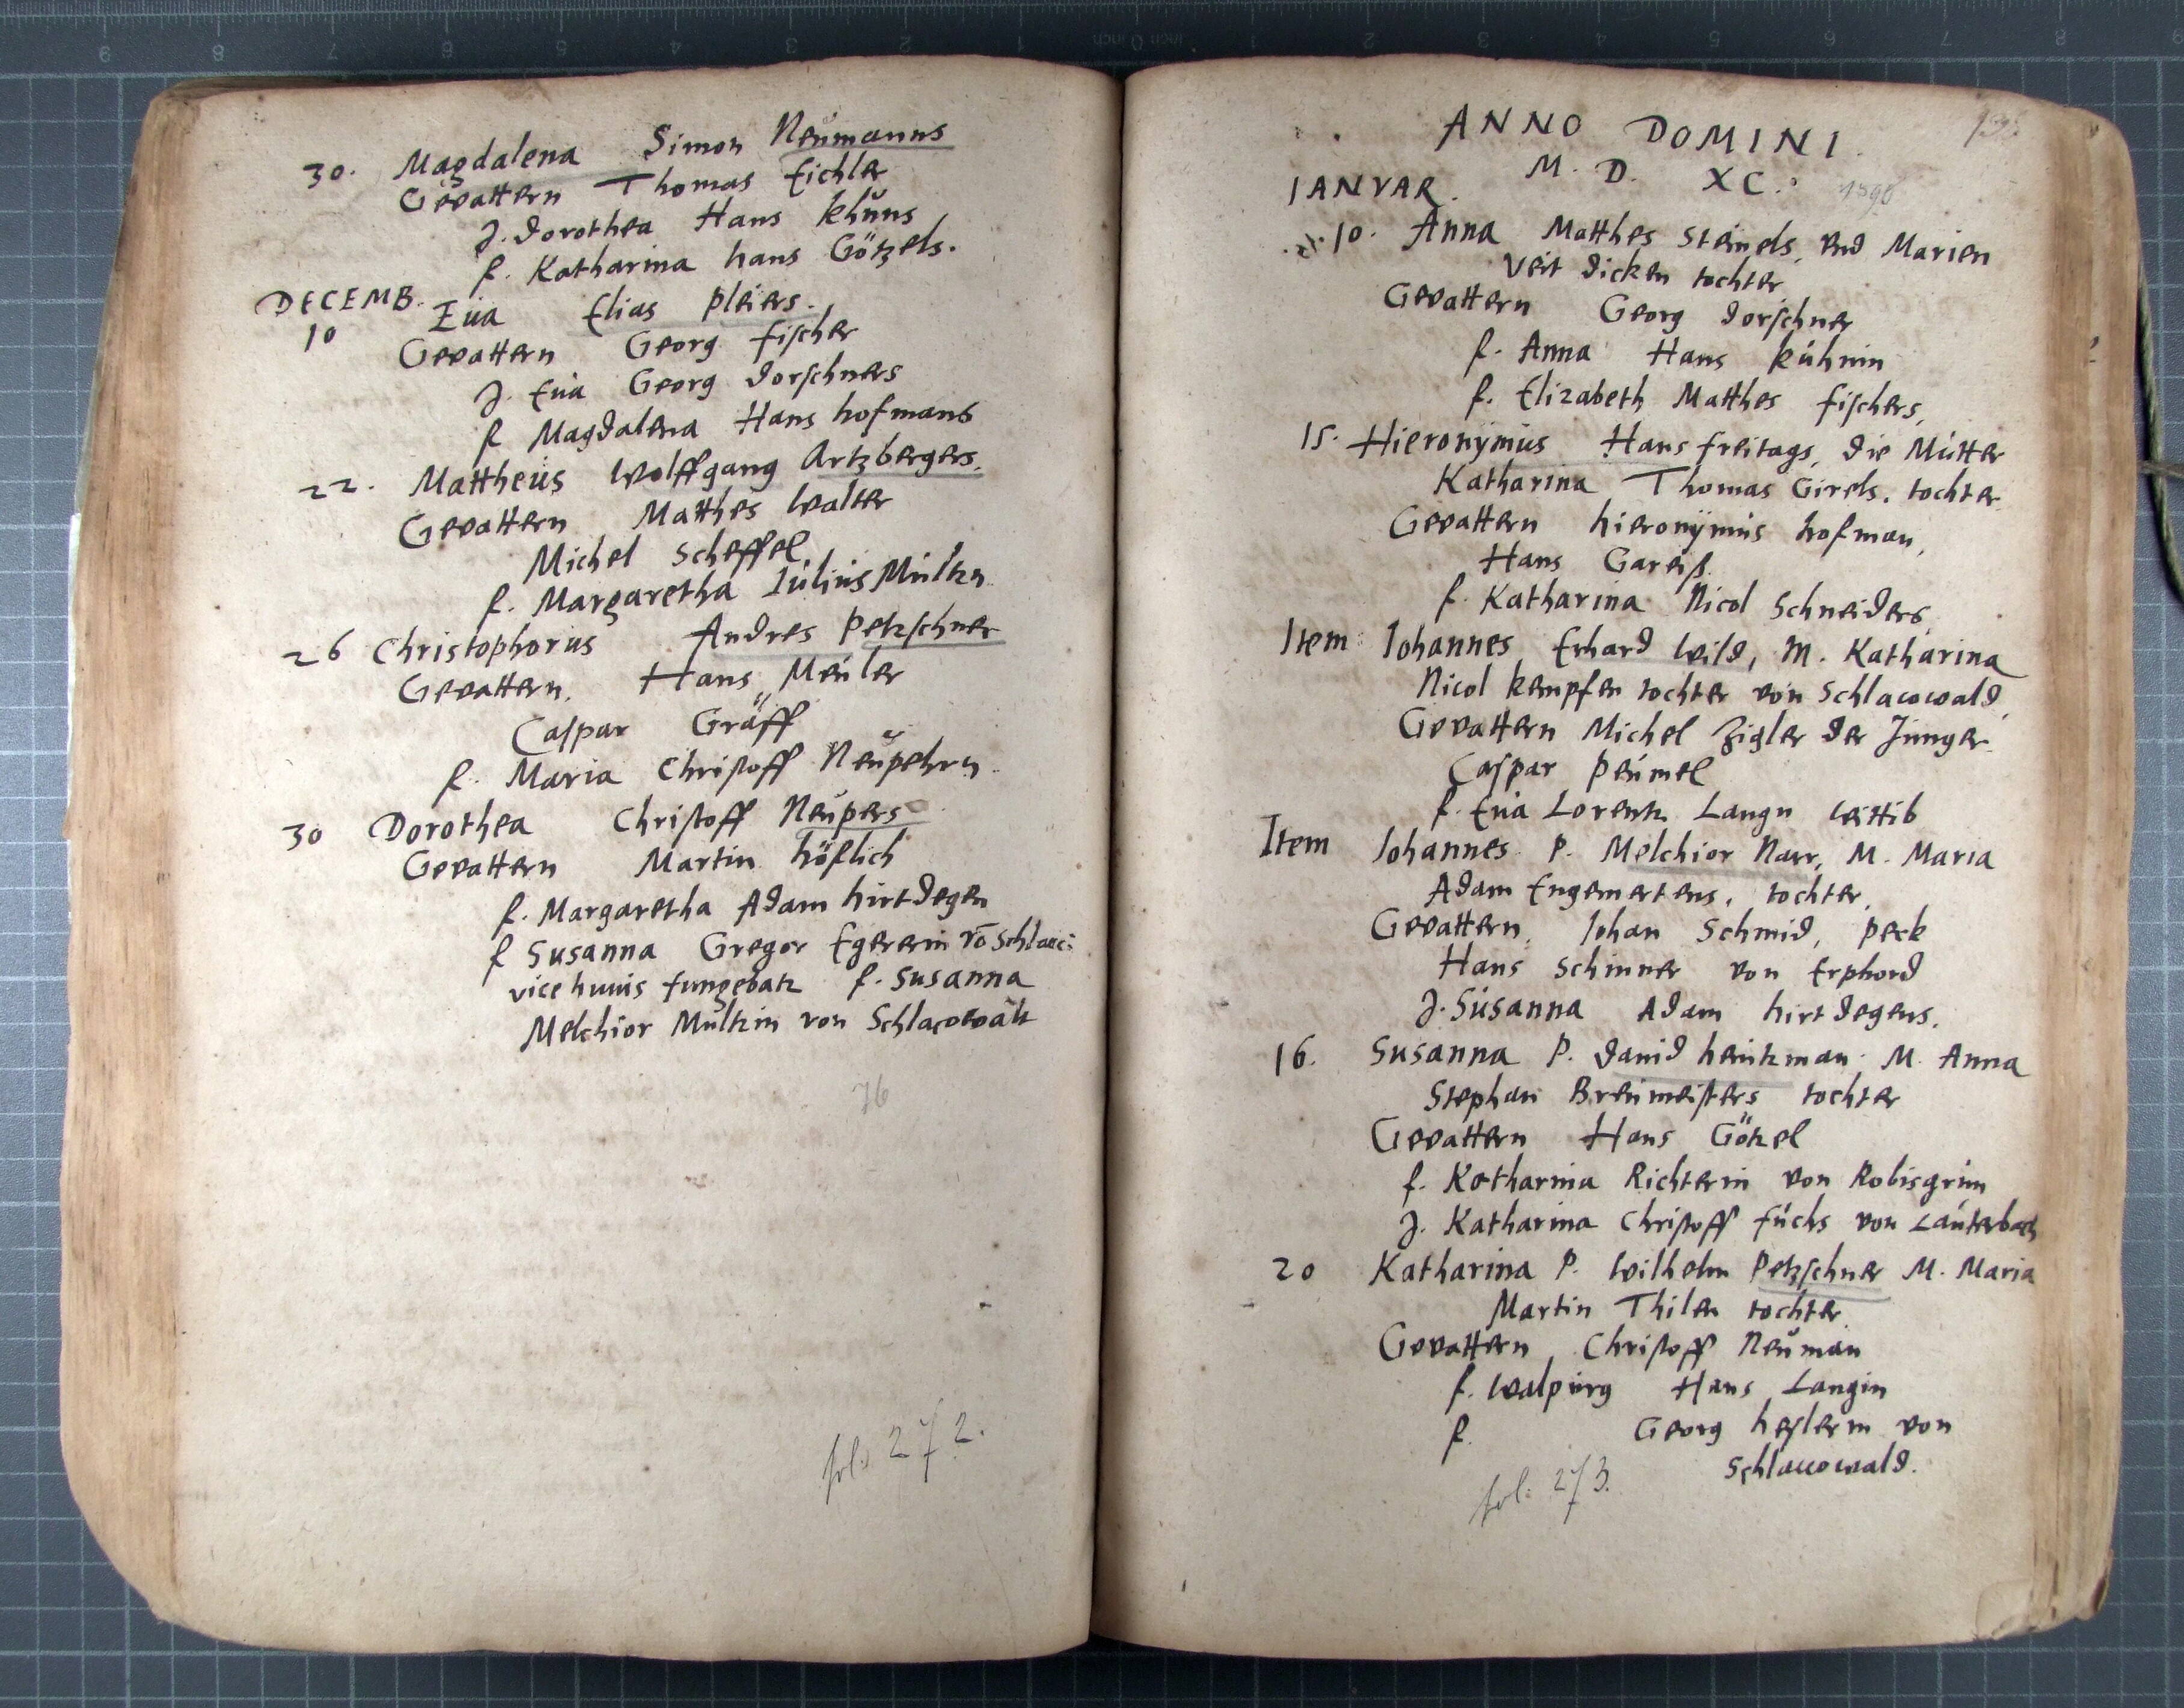 30. Magdalena Simon Neümanns
Gevattern Thomas Eichler
J. Dorothea Hans khüns
f. Katharina hans Götzels.
DECEMB.
10 Eua Elias pleiers.
Gevattern Georg fischer
J. Eua Georg Dorschners
f Magdalena Hans hofmans
22. Mattheüs Wolffgang Artzbergers.
Gevattern Matthes Walter
Michel Scheffel
f. Margaretha Iúliús Múltzn
26 Christophorus Andres Petzschner
Gevattern. Hans Meúler
Caspar Gräff
f. Maria Christoff Neüpehrn.
30 Dorothea Christoff Neüpers
Gevattern Martin höflich
f. Margaretha Adam hirtdegen
f Susanna Gregor Egererin vō Schlacc:
vice huius fungebatz f. Susanna
Melchior Multzin von Schlacowalt
76
fol. 272.
ANNO DOMINI
M. D. XC. 1590
IANVAR.
10. Anna Matthes Steinels, vnd Marien
Veit Dicken tochter
Gevattern Georg Dorschner
f. Anna Hans kúhnin
f. Elizabeth Matthes fischers,
15. Hieronÿmús Hans freitags, die Mútter
Katharina Thomas Girels, tochter
Gevattern hieronÿmús hofman,
Hans Gareiß.
f. Katharina Nicol Schneiders
Item Iohannes Erhard Wild, M. Katharina
Nicol kempfen tochter von Schlacowald,
Gevattern Michel Zigler der Jünger.
Caspar Peúmel
f. Eua Lorentz Langn Wittib
Item Iohannes P. Melchior Narr, M. Maria
Adam Engemertens, tochter,
Gevattern, Iohan Schmid, peck
Hans Schinner von Erphord
J. Súsanna Adam hirtdegens.
16. Susanna P. Dauid heintzman. M. Anna
Stephan Breúmeisters tochter
Gevattern Hans Götzel
f. Katharina Richterin von Robisgrún
J. Katharina Christoff fúchs von Laúterbach
20 Katharina P. Wilhelm Petzschner M. Maria
Martin Thilen tochter
Gevattern Christoff Neüman
f. Walpúrg Hans Langin
f. Georg heslerin von
Schlaccowald.
fol. 273.